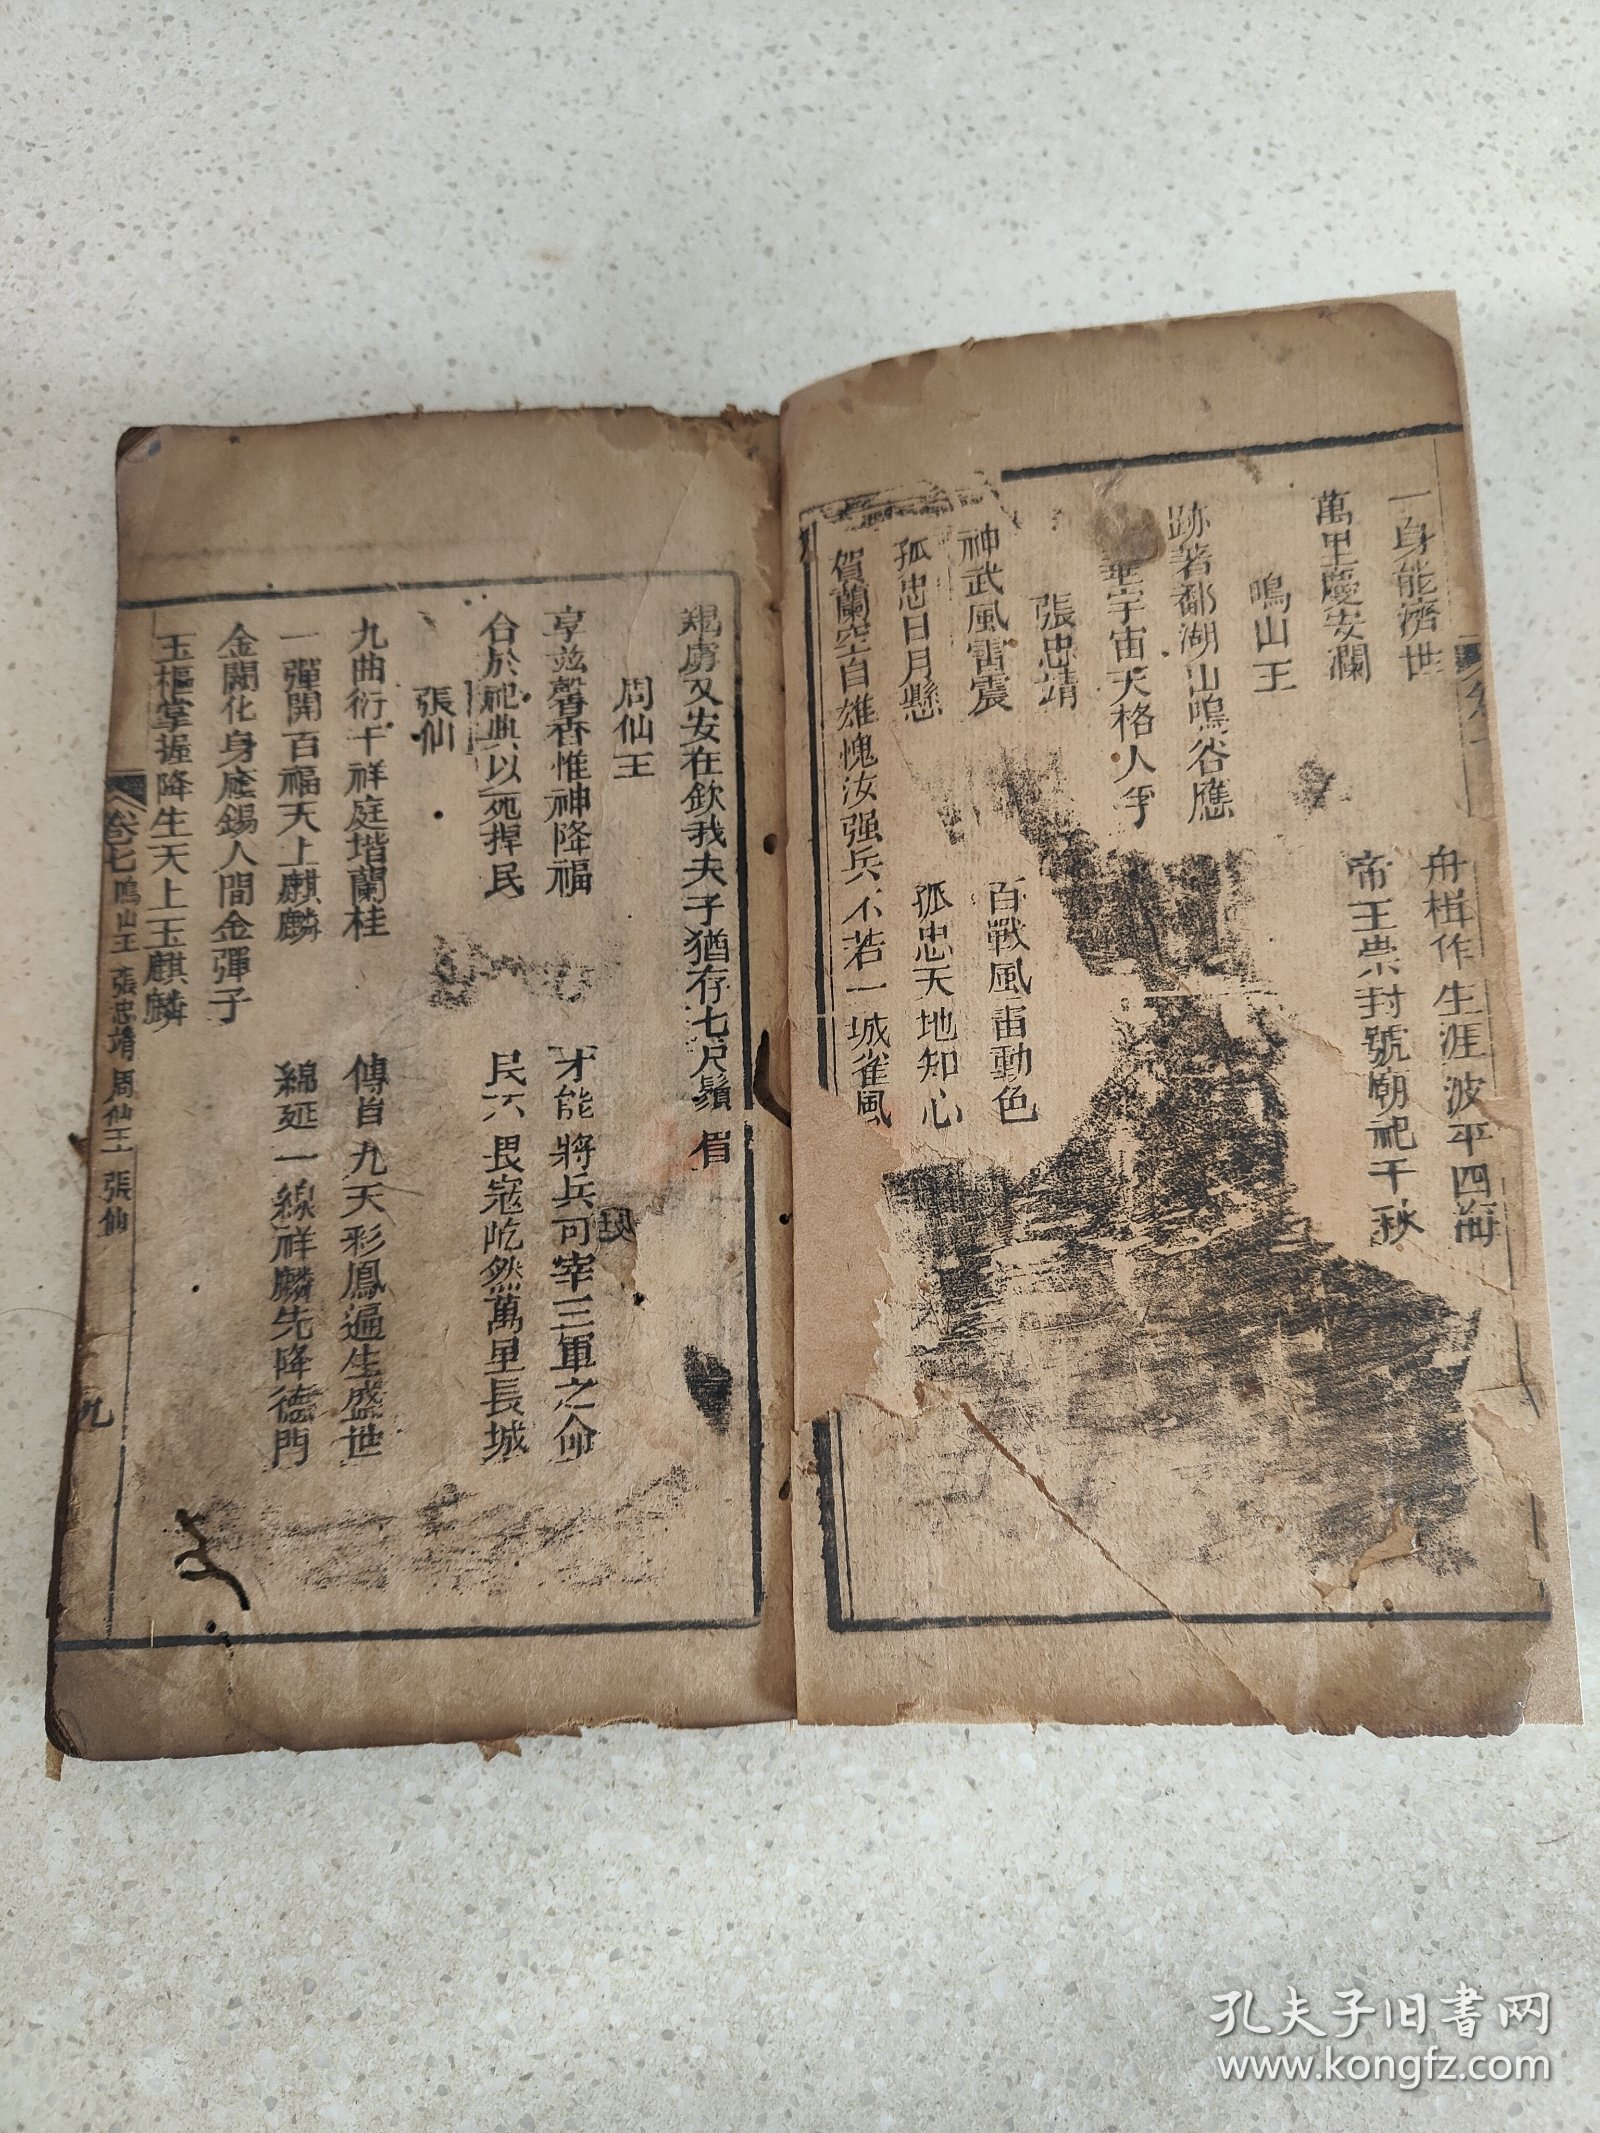 一身能濟世
舟楫作生涯波平四海
萬里慶安瀾
帝王崇封號廟祀千秋
鳴山王
跡著鄱湖山鳴谷應
宇宙天格人孚
張忠靖
神武風雷震
百戰風雷動色
孤忠日月懸
孤忠天地知心
賀蘭空自雄愧汝强兵不若一城雀風
羯虜又安在欽我夫子猶存七尺鬚眉
周仙王
享兹馨香惟神降福
才能將兵可宰三軍之命
合於祀典以死捍民
民不畏寇屹然萬里長城
張仙
九曲衍千祥庭堦蘭桂
傳自九天彩鳳遍生盛世
一彈開百福天上麒麟
綿延一線祥麟先降德門
金闕化身應錫人間金彈子
玉樞掌握降生天上玉麒麟
卷七 鳴山王 張忠靖 周仙王 張仙 九
孔夫子旧書网
www.kongfz.com